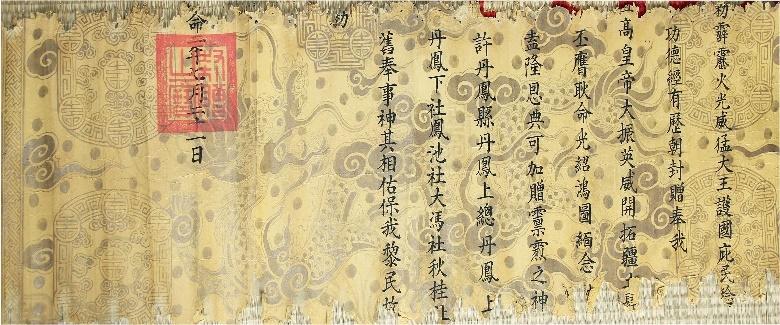 勅霹靂火光威猛大王護國庇民稔
功德經有歷朝封贈奉我
高皇帝大振英威開拓疆土
丕膺耿命光紹鴻圖緬念
盍隆恩典可加贈之神
許丹鳳縣丹鳳上總丹鳳上
丹鳳下社鳳池社大馮社秋桂社
舊奉事神其相佑保我黎民故
勅
命二年七月二十一日